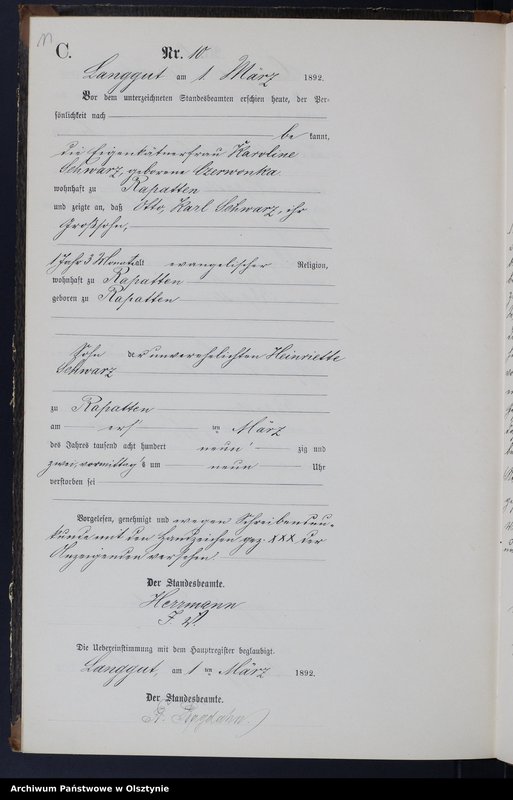 C.
Nr. 10
Langgut am 1 März 1892.
Vor dem unterzeichneten Standesbeamten erschien heute, der Per-
sönlichkeit nach
be kannt,
die Eigenkätnerfrau Karoline
Schwarz, geborene Czerwonka
wohnhaft zu Rapatten
und zeigte an, daß Otto, Karl Schwarz, ihr
Großsohn,
1 Jahr 3 Monate alt evangelischer Religion,
wohnhaft zu Rapatten
geboren zu Rapatten
Sohn der unverehelichten Heinriette
Schwarz
zu Rapatten
am ersten März
des Jahres tausend acht hundert neun zig und
zwei, vormittags um neun Uhr
verstorben sei
Vorgelesen, genehmigt und wegen Schreibensun-
kunde mit den Handzeichen gez. XXX der
Anzeigenden versehen
Der Standesbeamte.
Herrmann
I. V.
Die Uebereinstimmung mit dem Hauptregister beglaubigt.
Langgut, am 1 ten März 1892.
Der Standesbeamte.
Archiwum Państwowe w Olsztynie